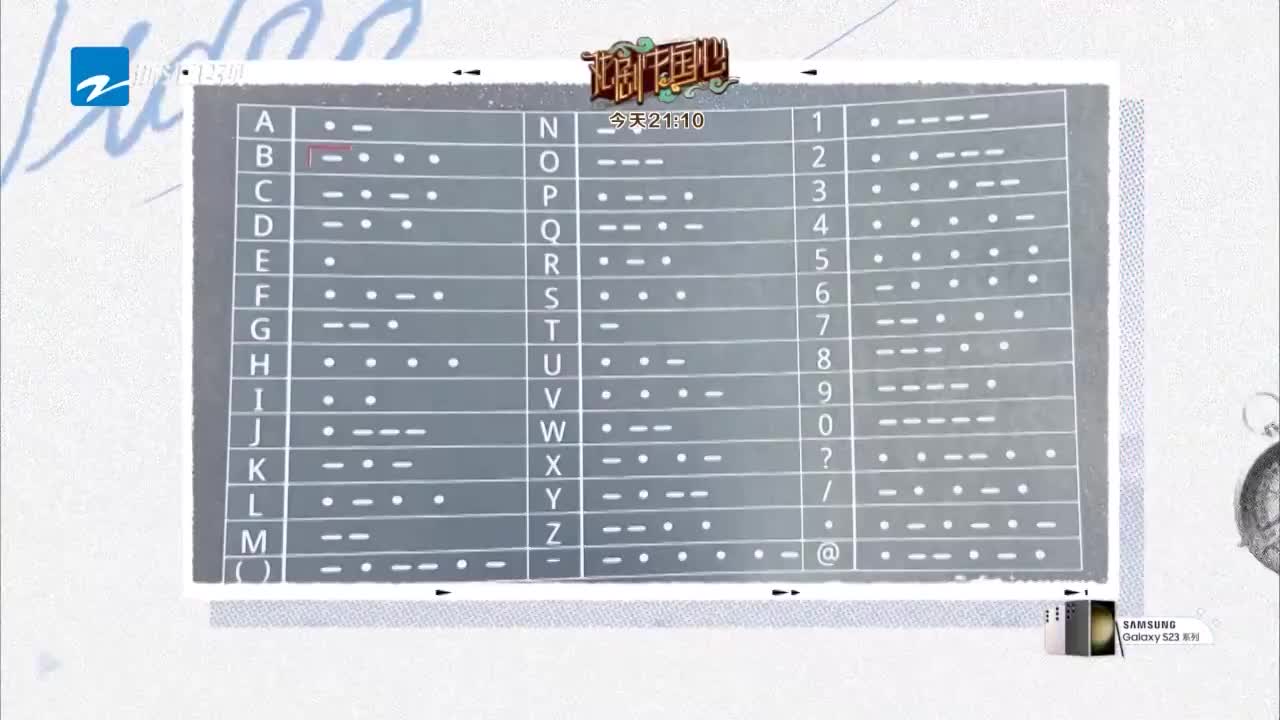 戏剧中国心
今天21:10
A • — N — • 1 • — — — —
B — • • • O — — — 2 • • — — —
C — • — • P • — — • 3 • • • — —
D — • • Q — — • — 4 • • • • —
E • R • — • 5 • • • • •
F • • — • S • • • 6 — • • • •
G — — • T — 7 — — • • •
H • • • • U • • — 8 — — — • •
I • • V • • • — 9 — — — — •
J • — — — W • — — 0 — — — — —
K — • — X — • • — ? • • — — • •
L • — • • Y — • — — / — • • — •
M — — Z — — • • • • — • — • —
( ) — • — — • — - — • • • • — @ • — — • — •
SAMSUNG
Galaxy S23 系列